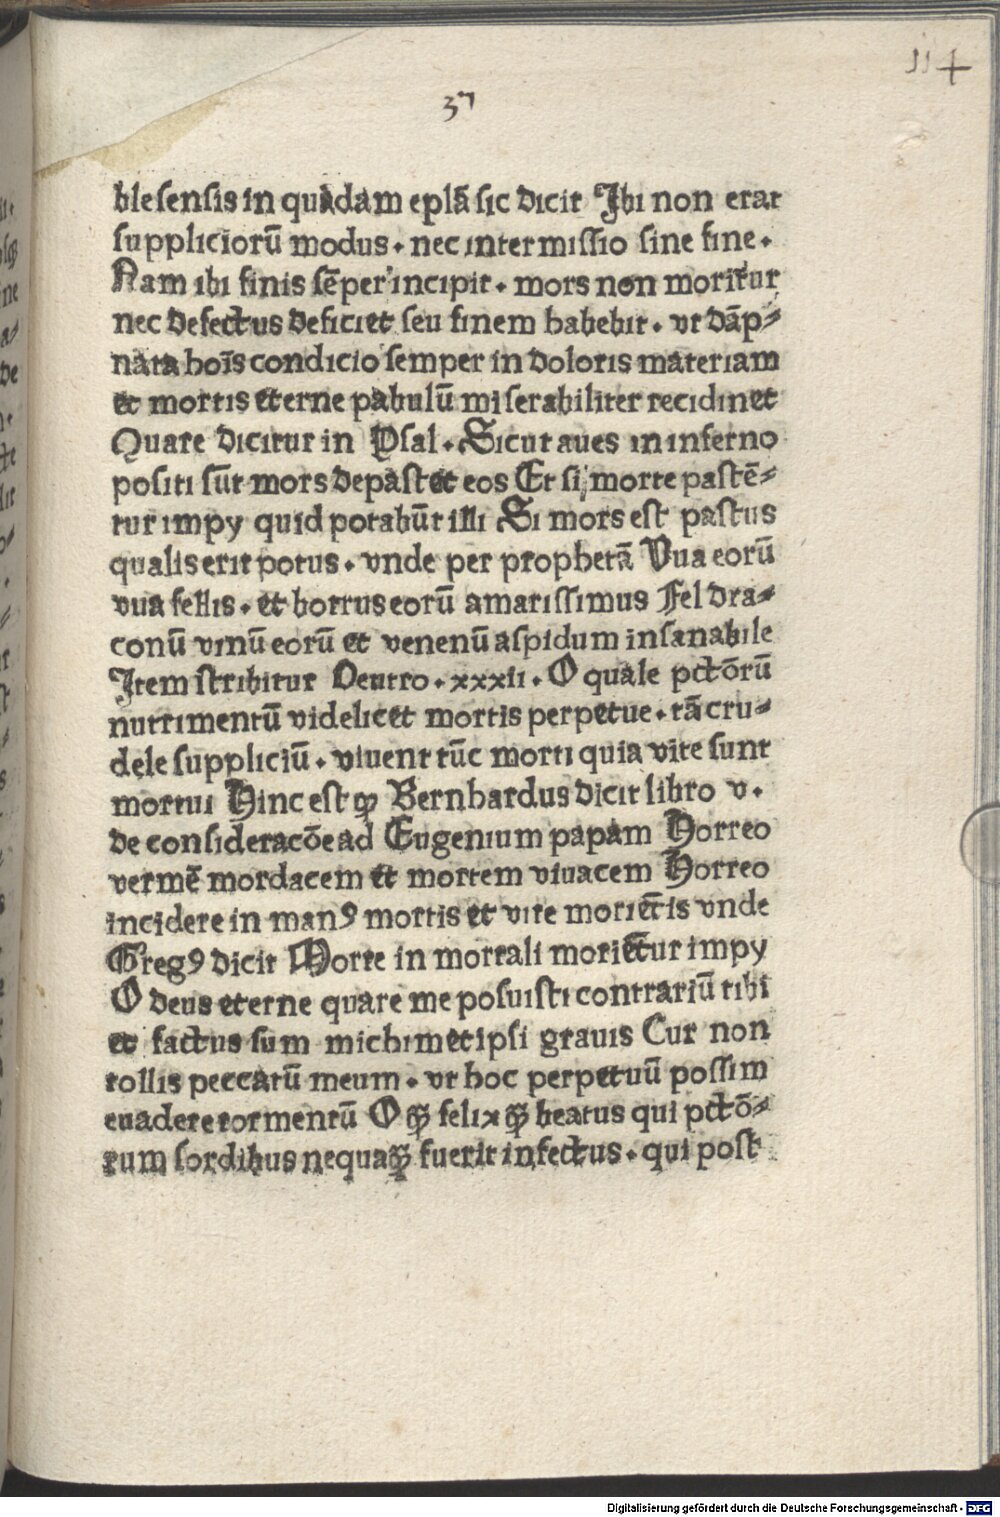 114
37
blesensis in quadam eplā sic dicit Ibi non erat
suppliciorū modus. nec intermissio sine fine.
Nam ibi finis sēper incipit. mors non moritur
nec defectus deficiet seu finem habebit. vt dāp⸗
nata hoīs condicio semper in doloris materiam
et mortis eterne pabulū miserabiliter recidiuet
Quare dicitur in Psal. Sicut aues in inferno
positi sūt mors depastet eos Et si morte pastē⸗
tur impy quid potabūt illi Si mors est pastus
qualis erit potus. vnde per prophetā Vua eorū
vua fellis. et botrus eorū amarissimus Fel dra⸗
conū vinū eorū et venenū aspidum insanabile
Item scribitur Deutro. xxxii. O quale pctōrū
nutrimentū videlicet mortis perpetue. tā cru⸗
dele suppliciū. viuent tūc morti quia vite sunt
mortui Hinc est ꝙ Bernhardus dicit libro v.
de consideracōe ad Eugenium papam Horreo
vermē mordacem et mortem viuacem Horreo
incidere in manꝰ mortis et vite moriētis vnde
Gregꝰ dicit Morte in mortali moriētur impy
O deus eterne quare me posuisti contrariū tibi
et factus sum michimetipsi grauis Cur non
tollis peccatū meum. vt hoc perpetuū possim
euadere tormentū O ꝙ̄ felix ꝙ̄ beatus qui pctō⸗
rum sordibus nequaꝙ̄ fuerit infectus. qui post
Digitalisierung gefördert durch die Deutsche Forschungsgemeinschaft - DFG